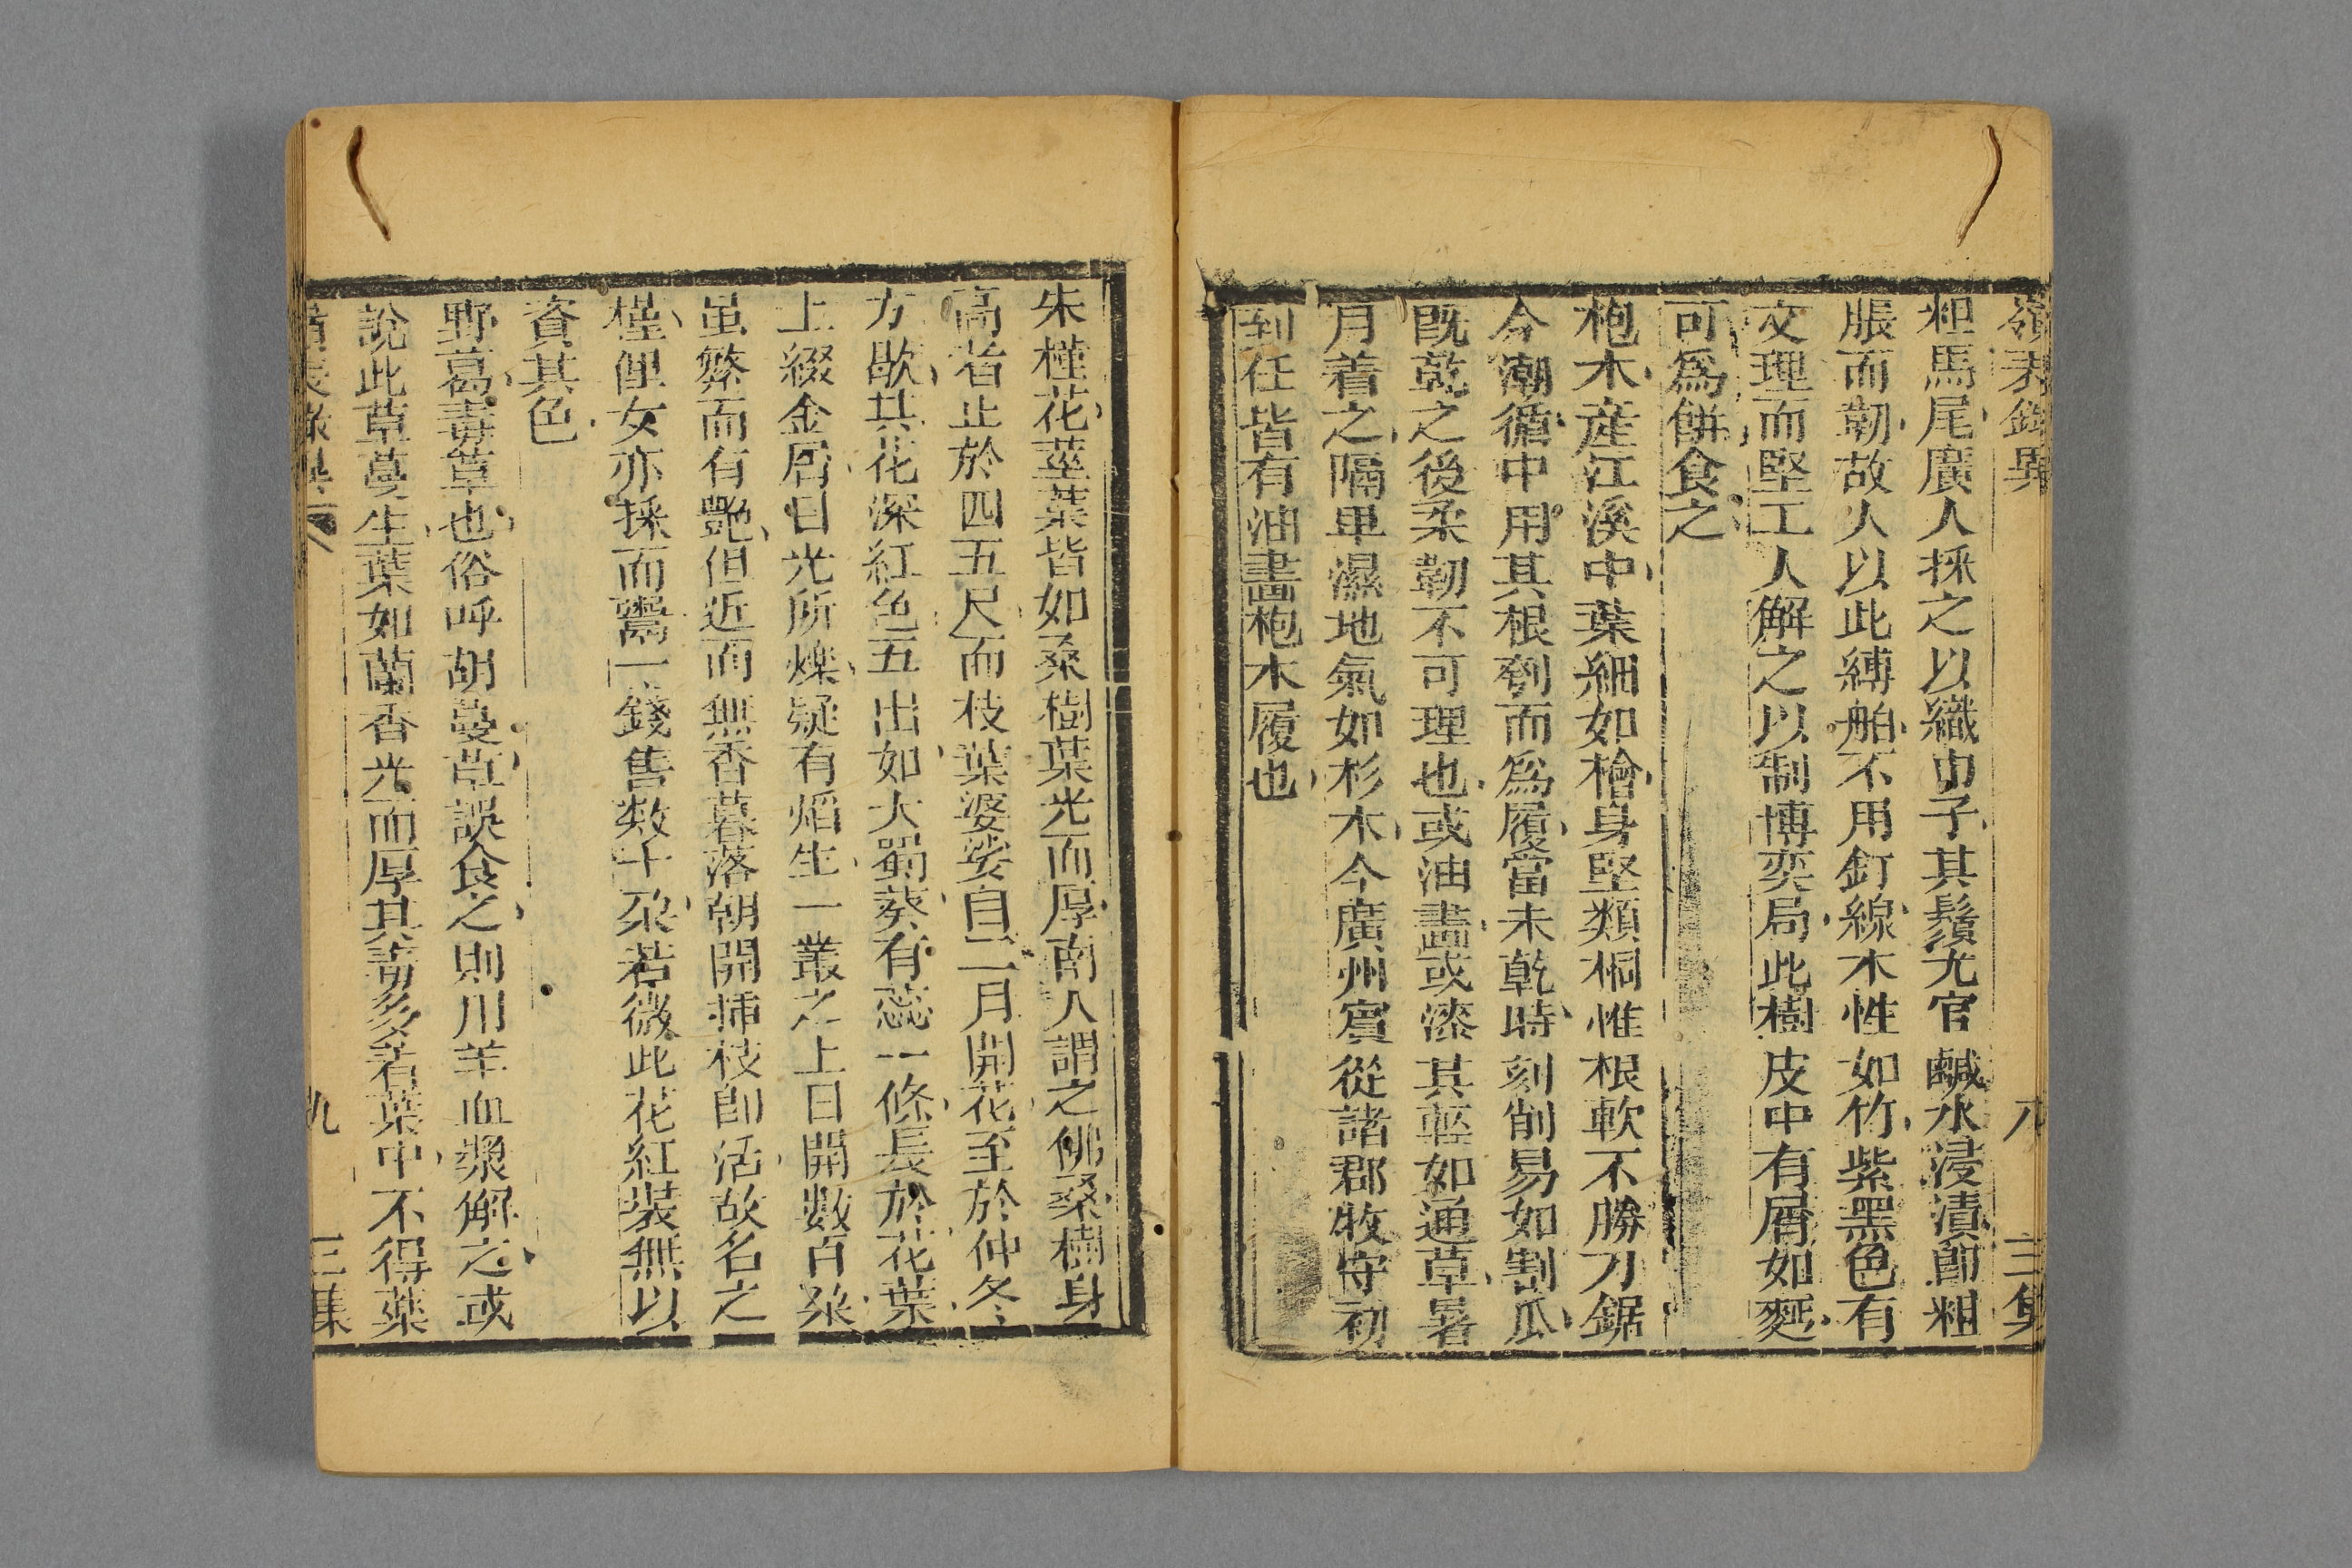 嶺表錄異 八 三集
粗馬尾廣人採之以織巾子其鬚尤宜鹹水浸漬卽粗
脹而韌故人以此縛舶不用釘線木性如竹紫黑色有
文理而堅工人解之以制博奕局此樹皮中有屑如麪
可爲餅食之
枹木產江溪中葉細如檜身堅類桐惟根軟不勝刀鋸
今潮循中用其根刳而爲履當未乾時刻削易如割瓜
旣乾之後柔韌不可理也或油畵或漆其輕如通草暑
月着之隔卑濕地氣如杉木今廣州賓從諸郡牧守初
到任皆有油畵枹木履也
朱槿花莖葉皆如桑樹葉光而厚南人謂之佛桑樹身
高者止於四五尺而枝葉婆娑自二月開花至於仲冬
方歇其花深紅色五出如大蜀葵有蕊一條長於花葉
上綴金屑日光所爍疑有焰生一叢之上日開數百朶
虽繁而有艶但近而無香暮落朝開揷枝卽活故名之
槿俚女亦採而鬻一錢售数十朶若微此花紅裝無以
資其色
野葛毒草也俗呼胡蔓草誤食之則用羊血漿解之或
說此草蔓生葉如蘭香光而厚其毒多著葉中不得藥
九 三集